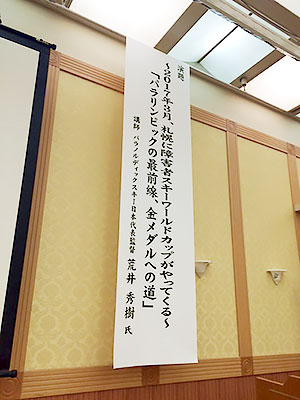 演題
～2017年3月、札幌に障害者スキーワールドカップがやってくる～
「パラリンピックの最前線、金メダルへの道」
講師 パラノルディックスキー日本代表監督 荒井 秀樹 氏